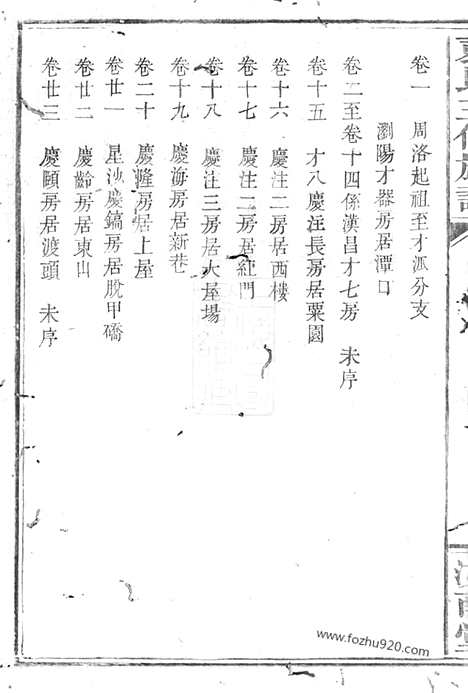 卷一　周洛起祖至才派分支
瀏陽才器房居潭口
卷二至卷十四係漢昌才七房　未序
卷十五　才八慶注長房居粟園
卷十六　慶注二房居西樓
卷十七　慶注二房居紅門
卷十八　慶注三房居大屋場
卷十九　慶海房居新巷
卷二十　慶隆房居上屋
卷廿一　星沙慶鎬房居脫甲橋
卷廿二　慶齡房居東山
卷廿三　慶頤房居渡頭　未序
www.fozhu920.com